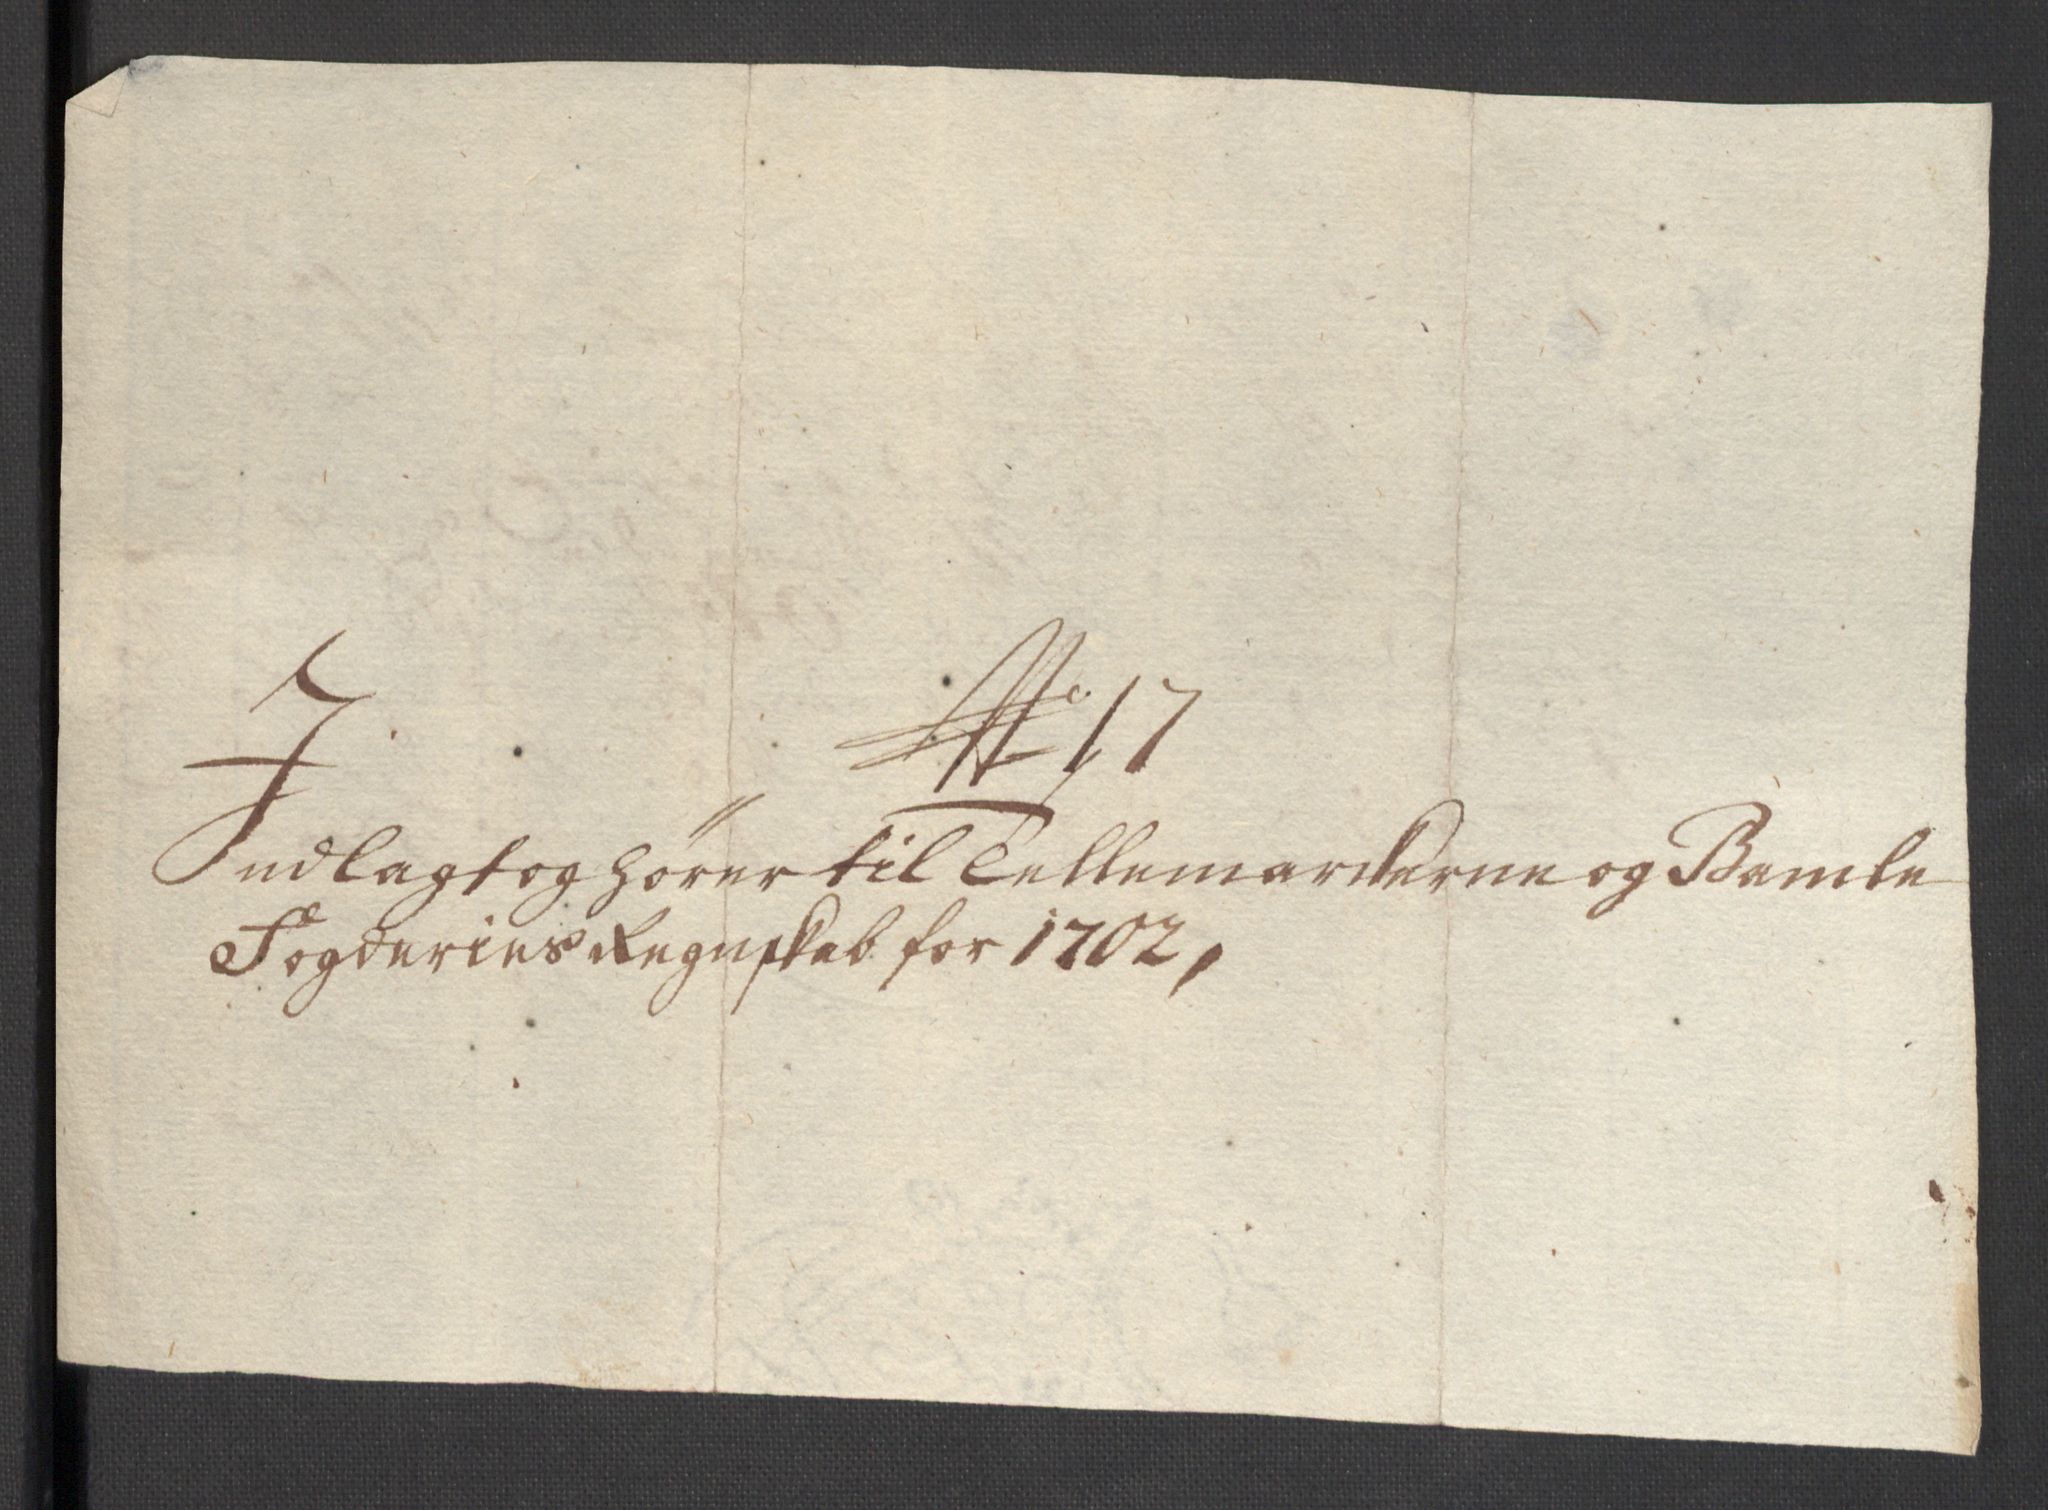 No. 17
Indlagt og hører til Tellemarckerne og Bamle
Fogderies Regnskab for 1702,